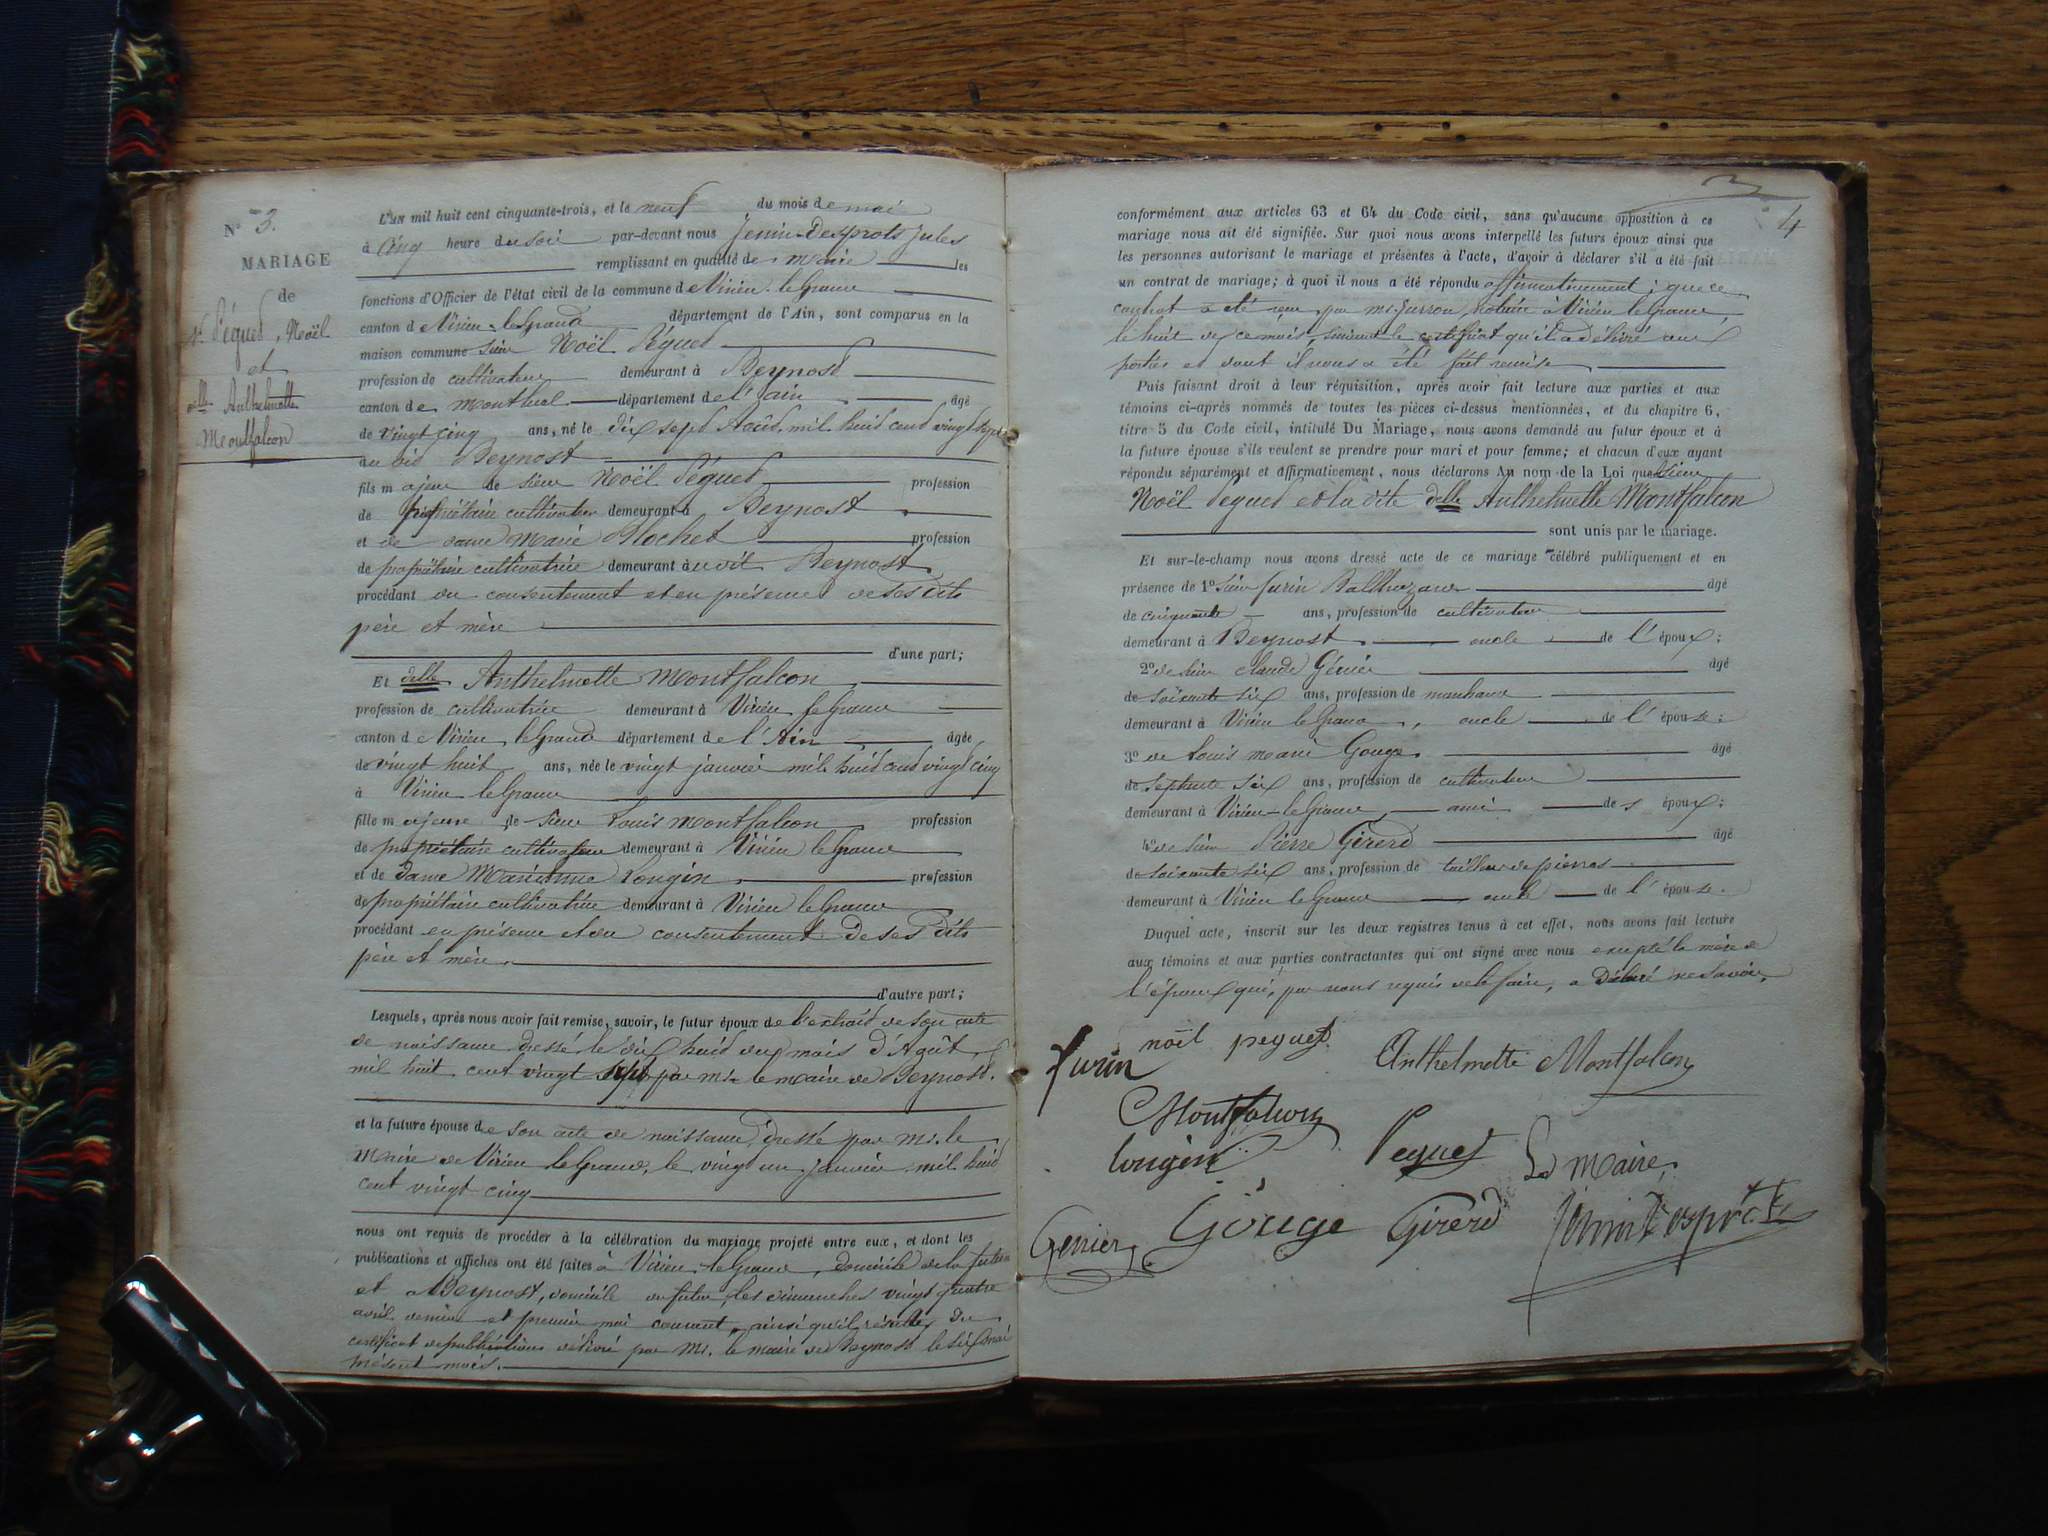 N° 3.
MARIAGE
de
Sr Péguet, Noël
et
delle Anthelmette
Montfalcon
L'AN mil huit cent cinquante-trois, et le neuf du mois de mai
à cinq heure du soir par-devant nous Jenin-Desprots Jules
remplissant en qualité de maire les
fonctions d'Officier de l'état civil de la commune de Virieu-le-Grand
canton de Virieu-le-Grand département de l'Ain, sont comparus en la
maison commune sieur Noël Péguet
profession de cultivateur demeurant à Beynost
canton de Montluel département de l'ain âgé
de vingt cinq ans, né le dix sept Août mil huit cent vingt sept
au dit Beynost
fils majeur de sieur Noël Péguet profession
de propriétaire cultivateur demeurant à Beynost
et de dame Marie Blochet profession
de propriétaire cultivatrice demeurant au dit Beynost
procédant du consentement et en présence de ses dits
père et mère
d'une part;
Et delle Anthelmette Montfalcon
profession de cultivatrice demeurant à Virieu le Grand
canton de Virieu le Grand département de l'Ain âgée
de vingt huit ans, née le vingt janvier mil huit cent vingt cinq
à Virieu-le-Grand
fille majeure de sieur Louis Montfalcon profession
de propriétaire cultivateur demeurant à Virieu le Grand
et de Dame Marianne Longin profession
de propriétaire cultivatrice demeurant à Virieu le Grand
procédant en présence et du consentement de ses dits
père et mère.
d'autre part;
Lesquels, après nous avoir fait remise, savoir, le futur époux de l'extrait de son acte
de naissance dressé le dix huit du mois d'Août
mil huit cent vingt sept par Mr le maire de Beynost.
et la future épouse de son acte de naissance dressé par Mr. le
Maire de Virieu le Grand, le vingt un janvier mil huit
cent vingt cinq
nous ont requis de procéder à la célébration du mariage projeté entre eux, et dont les
publications et affiches ont été faites à Virieu-le-Grand, domicile de la future
et à Beynost, domicile du futur, les dimanches vingt quatre
avril dernier et premier mai courant, ainsi qu'il résulte du
certificat de publications délivré par Mr. le maire de Beynost le six
présent mois.
3
4
conformément aux articles 63 et 64 du Code civil, sans qu'aucune opposition à ce
mariage nous ait été signifiée. Sur quoi nous avons interpellé les futurs époux ainsi que
les personnes autorisant le mariage et présentes à l'acte, d'avoir à déclarer s'il a été fait
un contrat de mariage; à quoi il nous a été répondu affirmativement; que ce
contrat a été reçu par Mr notaire à Virieu le Grand,
le huit de ce mois, suivant le certificat qu'il a délivré aux
parties et dont il nous a été fait remise
Puis faisant droit à leur réquisition, après avoir fait lecture aux parties et aux
témoins ci-après nommés de toutes les pièces ci-dessus mentionnées, et du chapitre 6,
titre 5 du Code civil, intitulé Du Mariage, nous avons demandé au futur époux et à
la future épouse s'ils veulent se prendre pour mari et pour femme; et chacun d'eux ayant
répondu séparément et affirmativement, nous déclarons Au nom de la Loi que Sieur
Noël Péguet et la dite delle Anthelmette Montfalcon
sont unis par le mariage.
Et sur-le-champ nous avons dressé acte de ce mariage célébré publiquement et en
présence de 1° sieur Furin Balthazard âgé
de cinquante ans, profession de cultivateur
demeurant à Beynost oncle de l'époux;
2° de sieur Claude Génier âgé
de soixante six ans, profession de marchand
demeurant à Virieu le Grand, oncle de l'épouse;
3° de Louis Marie Gouge âgé
de septante six ans, profession de cultivateur
demeurant à Virieu-le-Grand ami des époux;
4° de sieur Pierre Girerd âgé
de soixante six ans, profession de tailleur de pierres
demeurant à Virieu le Grand oncle de l'épouse.
Duquel acte, inscrit sur les deux registres tenus à cet effet, nous avons fait lecture
aux témoins et aux parties contractantes qui ont signé avec nous excepté la mère de
l'époux qui, par nous requise de le faire, a déclaré ne savoir.
furin noël peguet Anthelmette Montfalcon
Montfalcon
longin Peguet Le Maire,
Genier Gouge Girerd Jenin Desprots